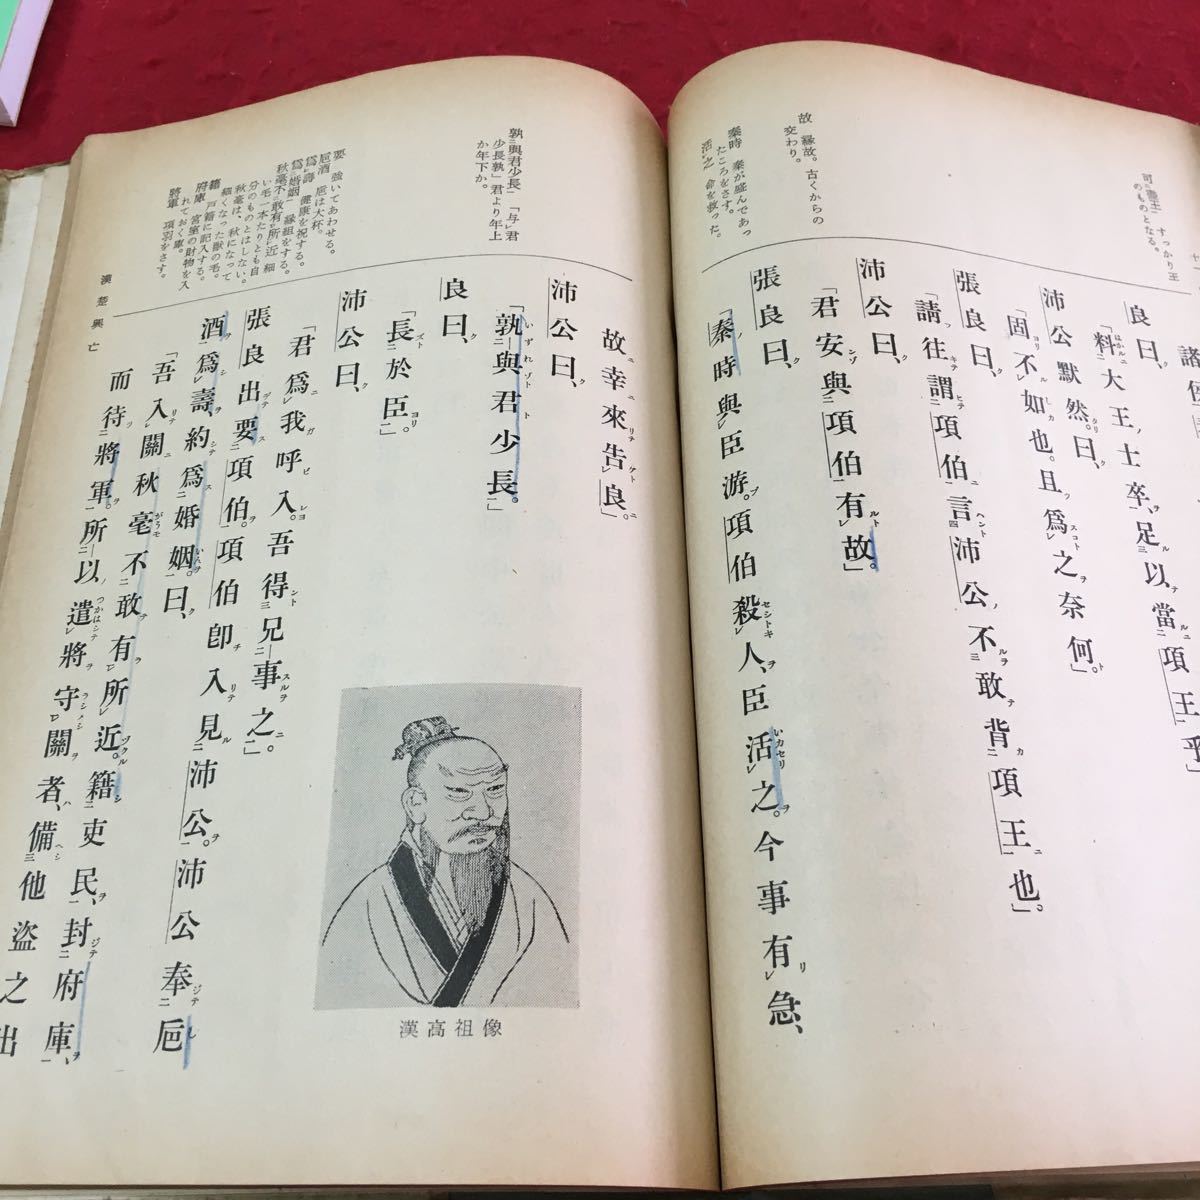 可盡王 すっかり王
のものとなる。
故 縁故。古くからの
交わり。
秦時 秦が盛んであっ
たころをさす。
活之 命を救った。
良曰、
「料大王士卒、足以當項王乎」
沛公默然。曰、
「固不如也。且爲之奈何」
張良曰、
「請往謂項伯、言沛公不敢背項王也。」
沛公曰、
「君安與項伯有故。」
張良曰、
「秦時與臣游。項伯殺人、臣活之。今事有急、
孰與君少長 「与君
少長孰」君より年上
か年下か。
要 強いてあわせる。
巵酒 巵は大杯。
爲壽 健康を祝する。
爲婚姻 縁組をする。
秋毫不敢有所近 細
い毛一本たりとも自
分のものとはしない。
秋毫は、秋になって
細くなった獣の毛。
籍 戸籍に記入する。
府庫 宮室の財物を入
れておく庫。
將軍 項羽をさす。
故幸來告良。」
沛公曰、
「孰與君少長。」
良曰、
「長於臣。」
沛公曰、
「君爲我呼入。吾得兄事之。」
張良出要項伯。項伯卽入見沛公。沛公奉巵
酒爲壽、約爲婚姻。曰、
「吾入關秋毫不敢有所近。籍吏民、封府庫、
而待將軍。所以遣將守關者、備他盜之出
漢高祖像
漢楚興亡